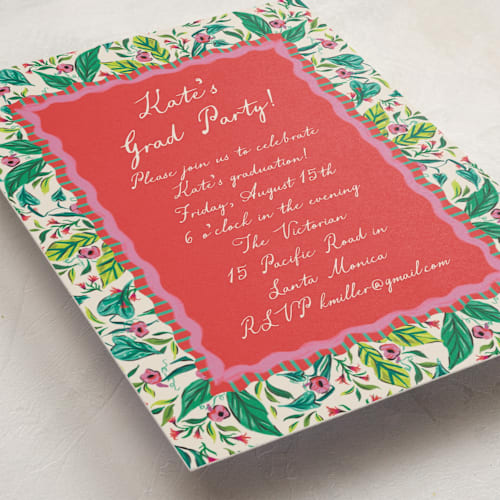 Kate's
Grad Party!
Please join us to celebrate
Kate's graduation!
Friday, August 15th
6 o'clock in the evening
The Victorian
15 Pacific Road in
Santa Monica
RSVP kmiller@gmail.com